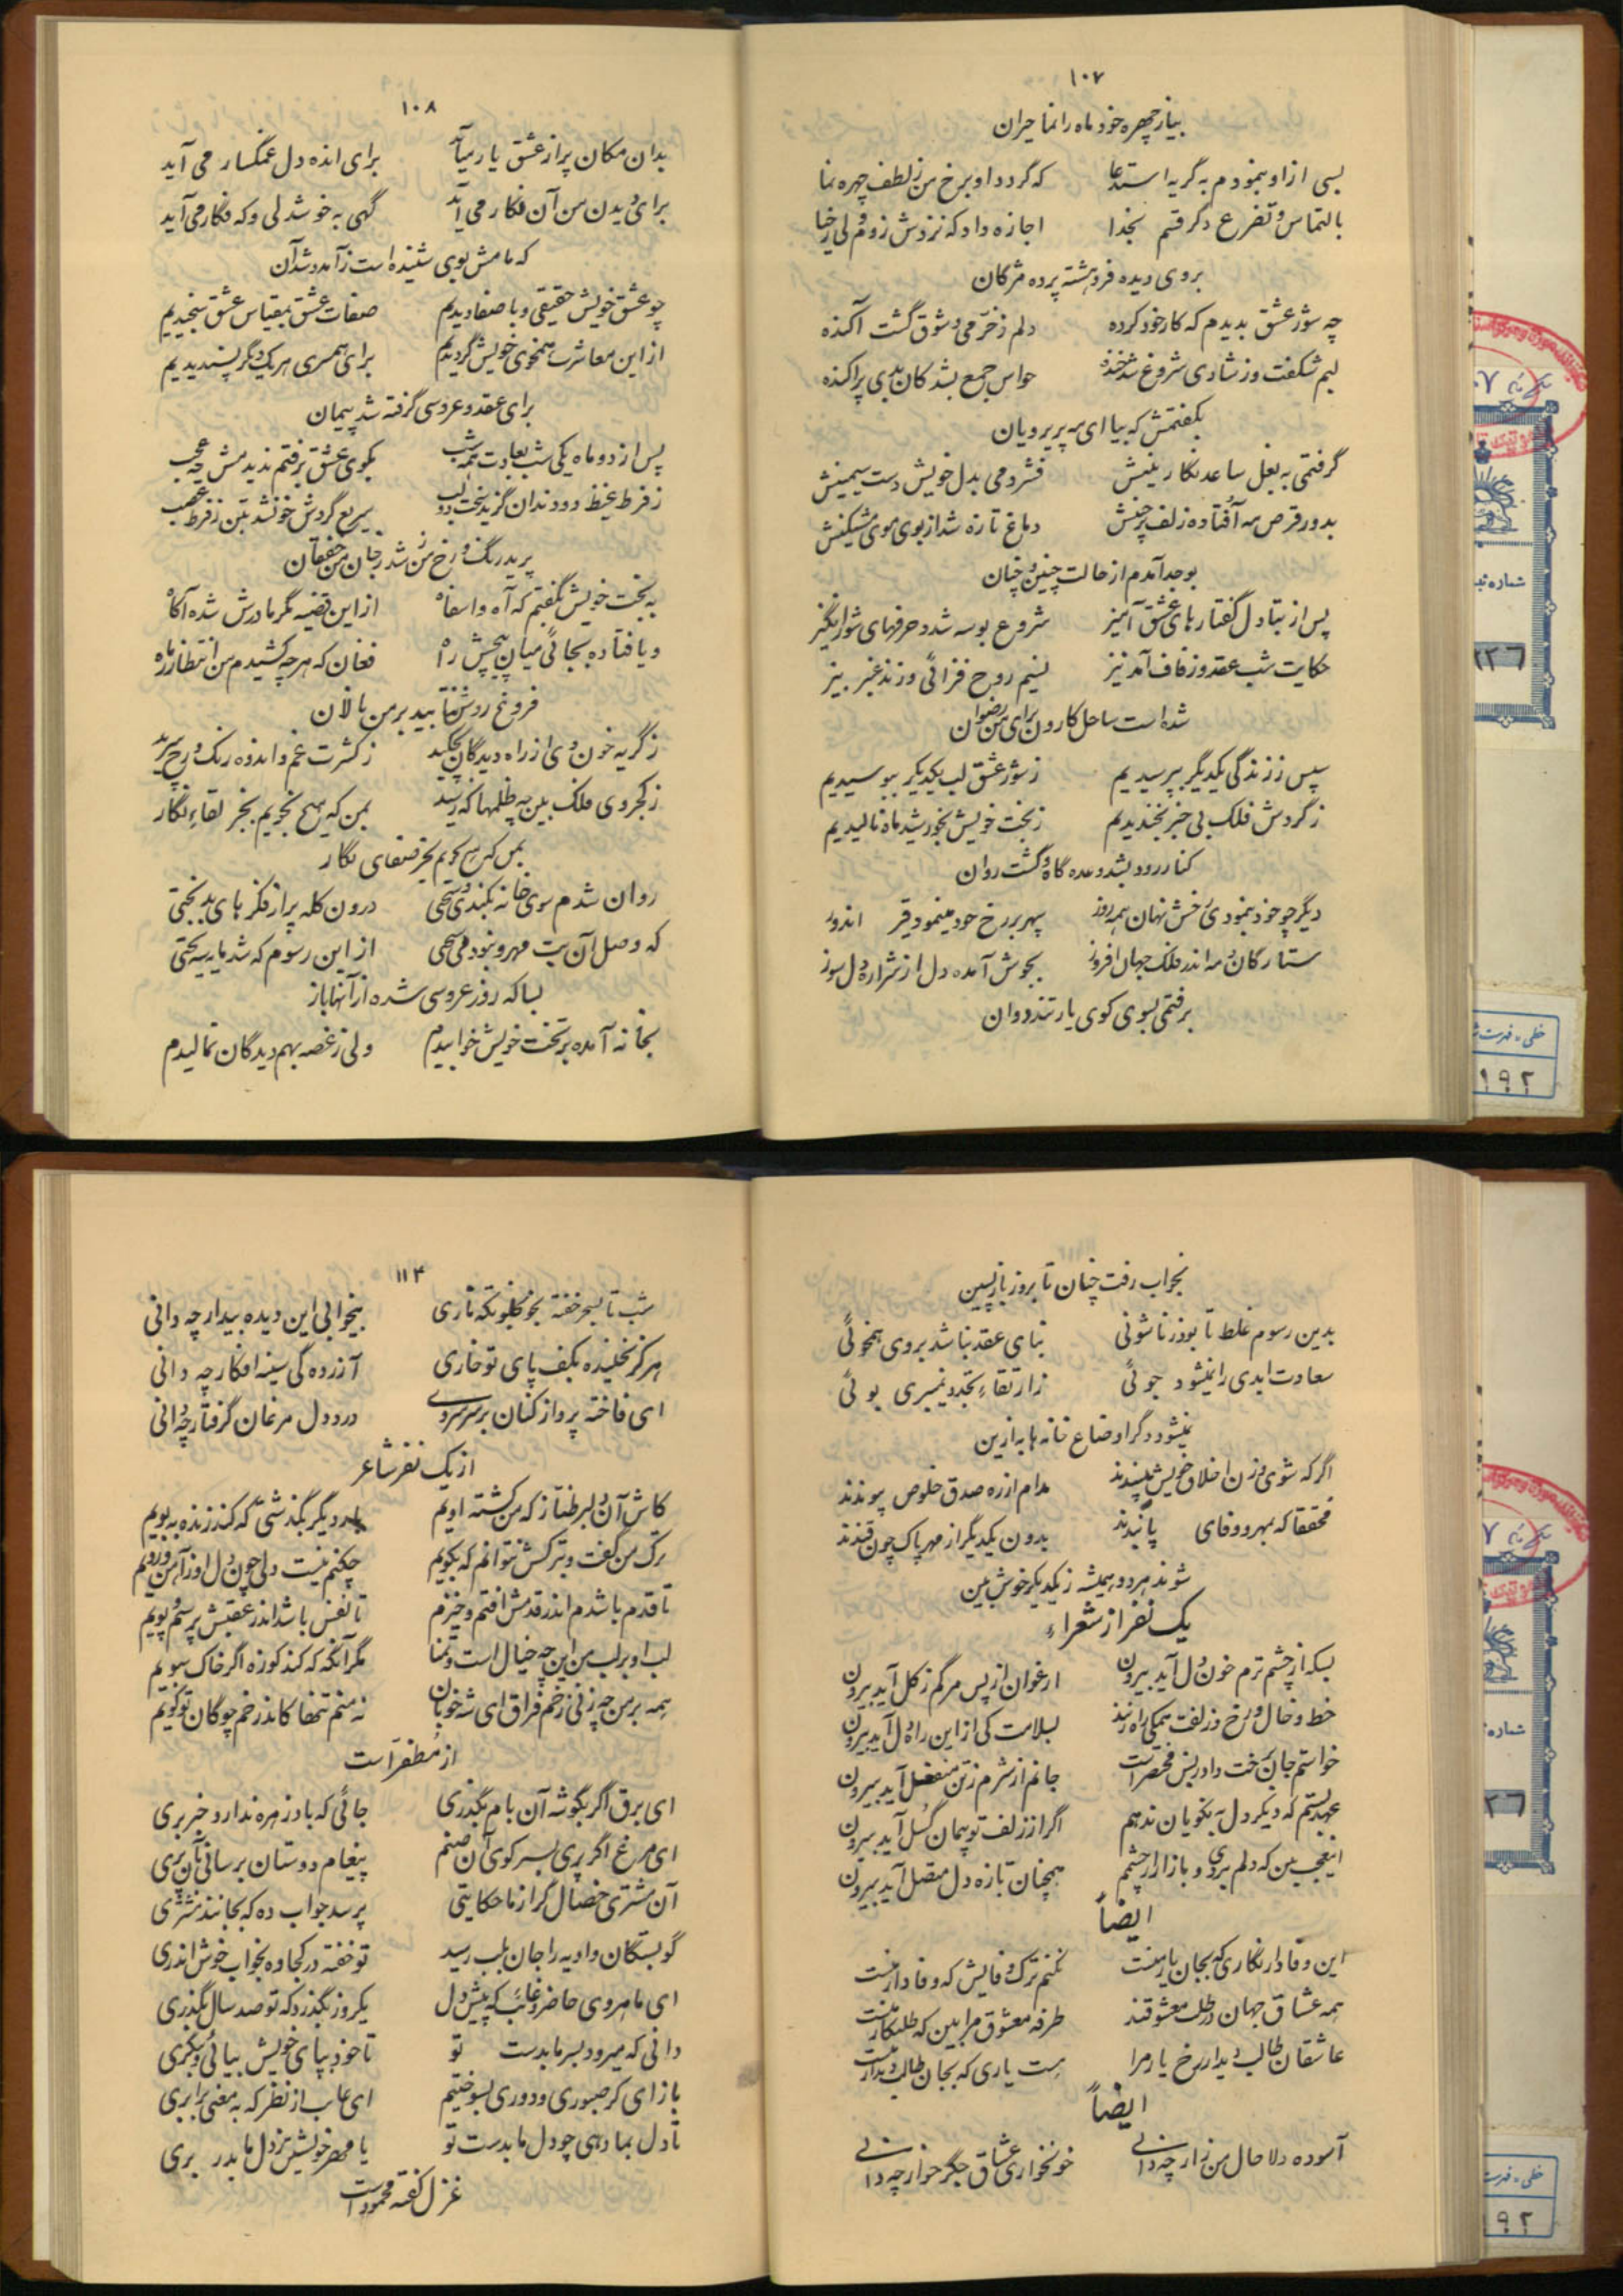 ۱۰۷
بیا ز چهره خود ماه را نما حیران
بسی از او بنمودم به گریه استدعا که گردد او برخ من ز لطف چهره نما
بالتماس و تضرع دگر قسم بخدا اجازه داد که نزدش روم ولی
بروی دیده فرو هشته پرده مژگان
چه شور عشق بدیدم که کار خود کرده دلم ز خرمی و شوق گشت آکنده
لبم شکفت وز شادی شروع شد خنده حواس جمع بشد کان بدی پراکنده
بگفتمش که بیا ای مه پریرویان
گرفتمی به بغل ساعد نگارینش فشردمی بدل خویش دست سیمینش
بدور قرص مه افتاده زلف پرچینش دماغ تازه شد از بوی موی مشکینش
بوجد آمدم از حالت چنین و چنان
پس از تبادل گفتارهای عشق آمیز شروع بوسه شد و حرفهای شورانگیز
حکایت شب عقد و زفاف آمد نیز نسیم روح فزائی وزند عنبر بیز
شده است ساحل کارون برای من رضوان
سپس ز زندگی یکدیگر بپرسیدیم ز شور عشق لب یکدیگر ببوسیدیم
ز گردش فلک بی خبر بخندیدیم ز بخت خویش بخورشید و ماه نالیدیم
کنار رود بشد وعده گاه و گشت روان
دیگر چو خود بنمودی رخش نهان همه روز سپهر بر رخ خود مینمود قیر اندوز
ستارگان و مه اندر فلک جهان افروز بجوش آمده دل از شراره دل سوز
برفتمی بسوی کوی یار تند دوان
۱۰۸
بدان مکان پر از عشق یار میآید برای انده دل غمگسار می آید
برای دیدن من آن فکار می آید گهی به خوشدلی و که فکار می آید
که مامش بوی شنیده است ز آمد و شد آن
چو عشق خویش حقیقی و باصفا دیدیم صفات عشق بمقیاس عشق سنجیدیم
از این معاشرت همخوی خویش گردیدیم برای همسری هر یک دگر پسندیدیم
برای عقد و عروسی گرفته شد پیمان
پس از دو ماه یکی شب بعادت همه شب بکوی عشق برفتم ندیدمش چه عجب
ز فرط غیظ دو دندان گزید سخت دو لب سریع گردش خون شد بتن ز فرط غضب
پرید رنگ و رخ من شد ز جان من خفقان
به بخت خویش بگفتم که آه و اسفاه از این قضیه مگر مادرش شده آگاه
و یا فتاده بجائی میان پیچش راه فغان که هر چه کشیدم من انتظار ز ماه
فروغ روش نتابید بر من نالان
ز گریه خون دی از راه دیدگان چکید ز کثرت غم و اندوه رنگ و رخ پرید
ز کجروی فلک بین چه ظلمها که رسید بمن که هیچ نجویم بجز لقاء نگار
بمن که هیچ نجویم بجز صفای نگار
روان شدم سوی خانه بکندی و سختی درون کله پر از فکرهای بدبختی
که وصل آن بت مهرو نبود می سختی از این رسوم که شد مایه سیه بختی
بسا که روز عروسی شده از آنها باز
بخانه آمده بر تخت خویش خوابیدم ولی ز غصه بهم دیدگان نمالیدم
بخواب رفت چنان تا بروز باز پسین
بدین رسوم غلط تا بود زناشوئی بنای عقد نباشد بروی همخوئی
سعادت ابدی را نمیشود جوئی ز ارتقاء تجدد نمیبری بوئی
نمیشود دگر اوضاع خانه ها به از این
اگر که شوی و زن اخلاق خویش بپسندند مدام از ره صدق خلوص پیوندند
محققا که بمهر و وفای پابندند بدون یکدیگر از مهر پاک چون قندند
شوند هر دو همیشه ز یکدیگر خوش بین
یک نفر از شعراء
بسکه از چشم ترم خون دل آید بیرون ارغوان از پس مرگم ز گل آید بیرون
خط و خال و رخ و زلفت همگی راه زنند بسلامت کی از این راه دل آید بیرون
خواستم جان بتو دادن بس مختصر است جانم از شرم ز تن منفعل آید بیرون
عهد بستم که دیگر دل به نکویان ندهم اگر از زلف تو پیمان گسل آید بیرون
این عجب بین که دلم بردی و باز از چشمم همچنان تازه دل متصل آید بیرون
ایضاً
این وفادار نگاری که بجان یار منست نکنم ترک وفایش که وفادار منست
همه عشاق جهان در طلب معشوقند طرفه معشوق مرا بین که طلبکار منست
عاشقان طالب دیدار رخ یار مرا هست یاری که بجان طالب دیدار منست
ایضاً
آسوده دلا حال من زار چه دانی خونخواری عشاق جگر خوار چه دانی
۱۱۴
شب تا بسحر خفته بخلوتگه نازی بیخوابی این دیده بیدار چه دانی
هرگز نخلیده بکف پای تو خاری آزرده گی سینه افکار چه دانی
ای فاخته پرواز کنان بر سر سروی درد دل مرغان گرفتار چه دانی
از یک نفر شاعر
کاش آن دلبر طناز که من کشته اویم بار دیگر بگذشتی که کند زنده به بویم
ترک من گفت و بترکش نتوانم که بگویم چکنم نیست دلی چون دل او ز آهن و رویم
تا قدم باشدم اندر قدمش افتم و خیزم تا نفس باشد اندر عقبش پرسم و پویم
لب او بر لب من این چه خیال است و تمنا مگر آنگه که کند کوزه گر از خاک سبویم
همه بر من چه زنی زخم فراق ای شه خوبان نه منم تنها کاندر خم چوگان تو گویم
از مظفر است
ای برق اگر بگوشه آن بام بگذری جائی که باد زهره ندارد خبر بری
ای مرغ اگر پری بسر کوی آن صنم پیغام دوستان برسانی بآن پری
آن مشتری خصال گر از ما حکایتی پرسد جواب ده که بجانند مشتری
گو بستگان وادیه را جان بلب رسید تو خفته در کجاوه بخواب خوش اندری
ای ماهروی حاضر و غائب که پیش دل یکروز نگذرد که تو صد سال بگذری
دانی که میرود بسر ما بدست تو تا خود بپای خویش بیائی و بنگری
باز ای کز صبوری و دوری بسوختیم ای غایب از نظر که به معنی برابری
تا دل بما دهی چو دل ما بدست تو یا مهر خویشتن ز دل ما بدر بری
غزل گفته محمود است
شماره
۱۹۲